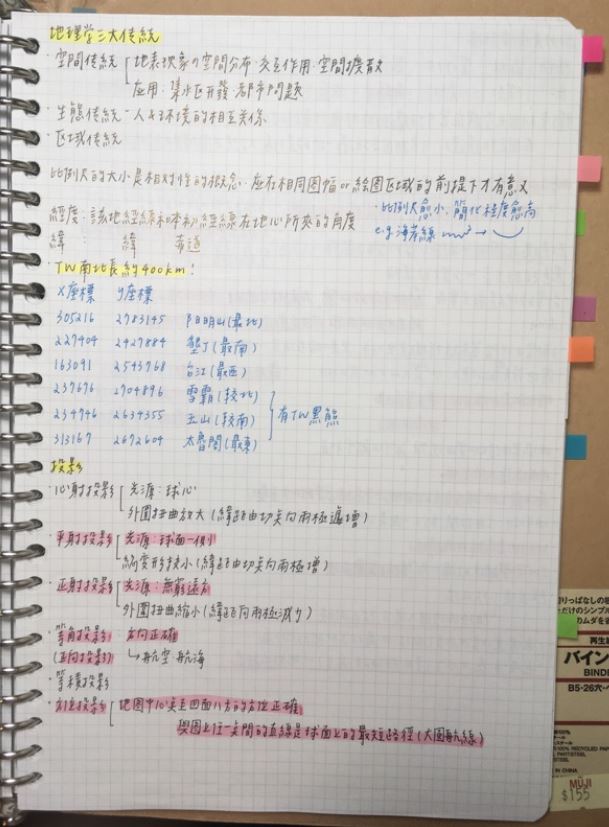 地理學三大传統
·空間传統 地表現象の空間分布·交互作用·空間擴散
应用:集水区开發·都市問題
·生態传統-人&環境的相互关係
·区域传統
比例尺的大小是相对性的概念·应在相同圖幅or繪圖区域的前提下才有意义
·比例尺愈小、簡化程度愈高
e.g.海岸線 →
經度:該地經線和本初經線在地心所夾的角度
緯: 緯 赤道
TW南北長約400km!
X座標 y座標
305216 2783145 阳明山(最北)
227404 2427884 墾丁(最南)
163091 2543768 台江(最西)
237676 2704896 雪霸(較北)
234746 2634355 玉山(較南)
313167 2672604 太魯閣(最東)
有TW黑熊
投影
·心射投影 光源:球心
外圍扭曲放大(緯距由切点向兩極遞增)
·平射投影 光源:球面一側
縮变形較小(緯距由切点向兩極增)
·正射投影 光源:無窮遠方
外圍扭曲縮小(緯距向兩極減少)
·等角投影 方向正確
(正向投影) ↳航空·航海
·等積投影
·方位投影 地圖中心点至四面八方的方位正確
與圖上任一点間的直線是球面上的最短路徑(大圓航線)
りっぱなしの
だけのシンプル
のムダを
再生
バイン
BINDE
B5·26穴·
100% RECYCLED PAP
PART:STEEL
STEEL
IN CHINA
MUJI
$155